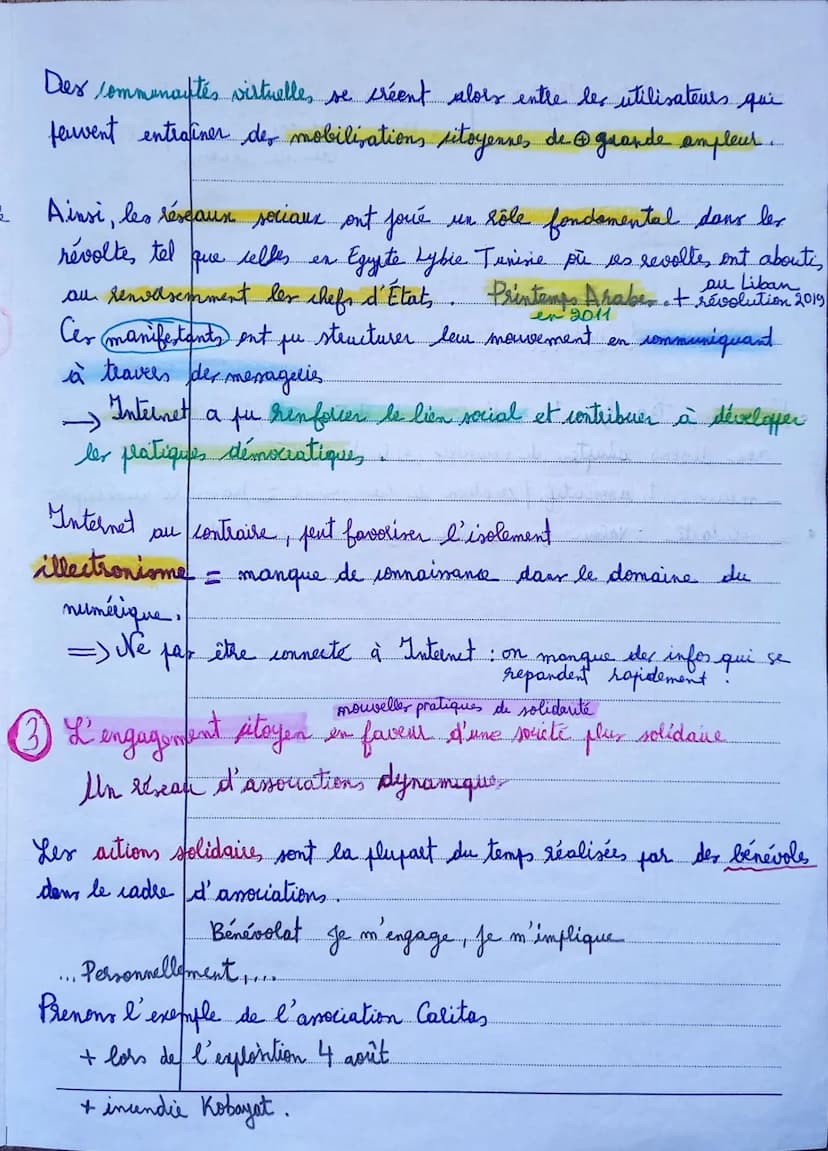 Des communautés virtuelles se créent alors entre les utilisateurs qui
peuvent entraîner des mobilisations citoyennes de ⊕ grande ampleur.
Ainsi, les réseaux sociaux ont joué un rôle fondamental dans les
révoltes tel que celles en Egypte Lybie Tunisie où ces revoltes ont abouti
au renversemment les chefs d'États. Printemps Arabe. + au Liban
en 2011 révolution 2019
Ces manifestants ont pu structurer leur mouvement en communiquant
à travers des messageries
→ Internet a pu renforcer le lien social et contribuer à développer
les pratiques démocratiques.
Internet au contraire, peut favoriser l'isolement
illectronisme = manque de connaissance dans le domaine du
numérique.
⇒ Ne pas être connecté à Internet : on manque des infos qui se
repandent rapidement !
nouvelles pratiques de solidarité
③ L'engagement citoyen en faveur d'une société plus solidaire
Un réseau d'associations dynamiques
Les actions solidaires sont la plupart du temps réalisées par des bénévoles
dans le cadre d'associations.
Bénévolat je m'engage, je m'implique
... Personnellement,....
Prenons l'exemple de l'association Caritas
+ lors de l'explosition 4 août
+ incendie Kobayat.